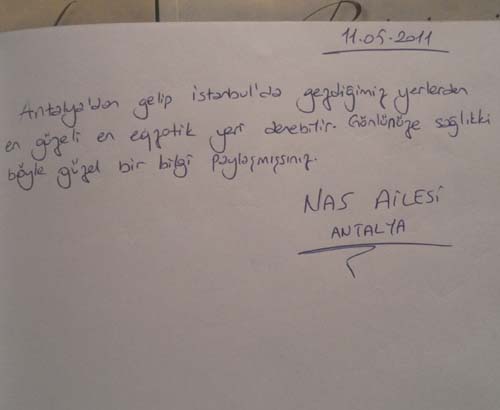 11.05.2011
Antalya'dan gelip istanbul'da gezdiğimiz yerlerden
en güzeli en eqzotik yeri denebilir. Gönlünüze sağlıkki
böyle güzel bir bilgi paylaşmışsınız.
NAS AİLESİ
ANTALYA